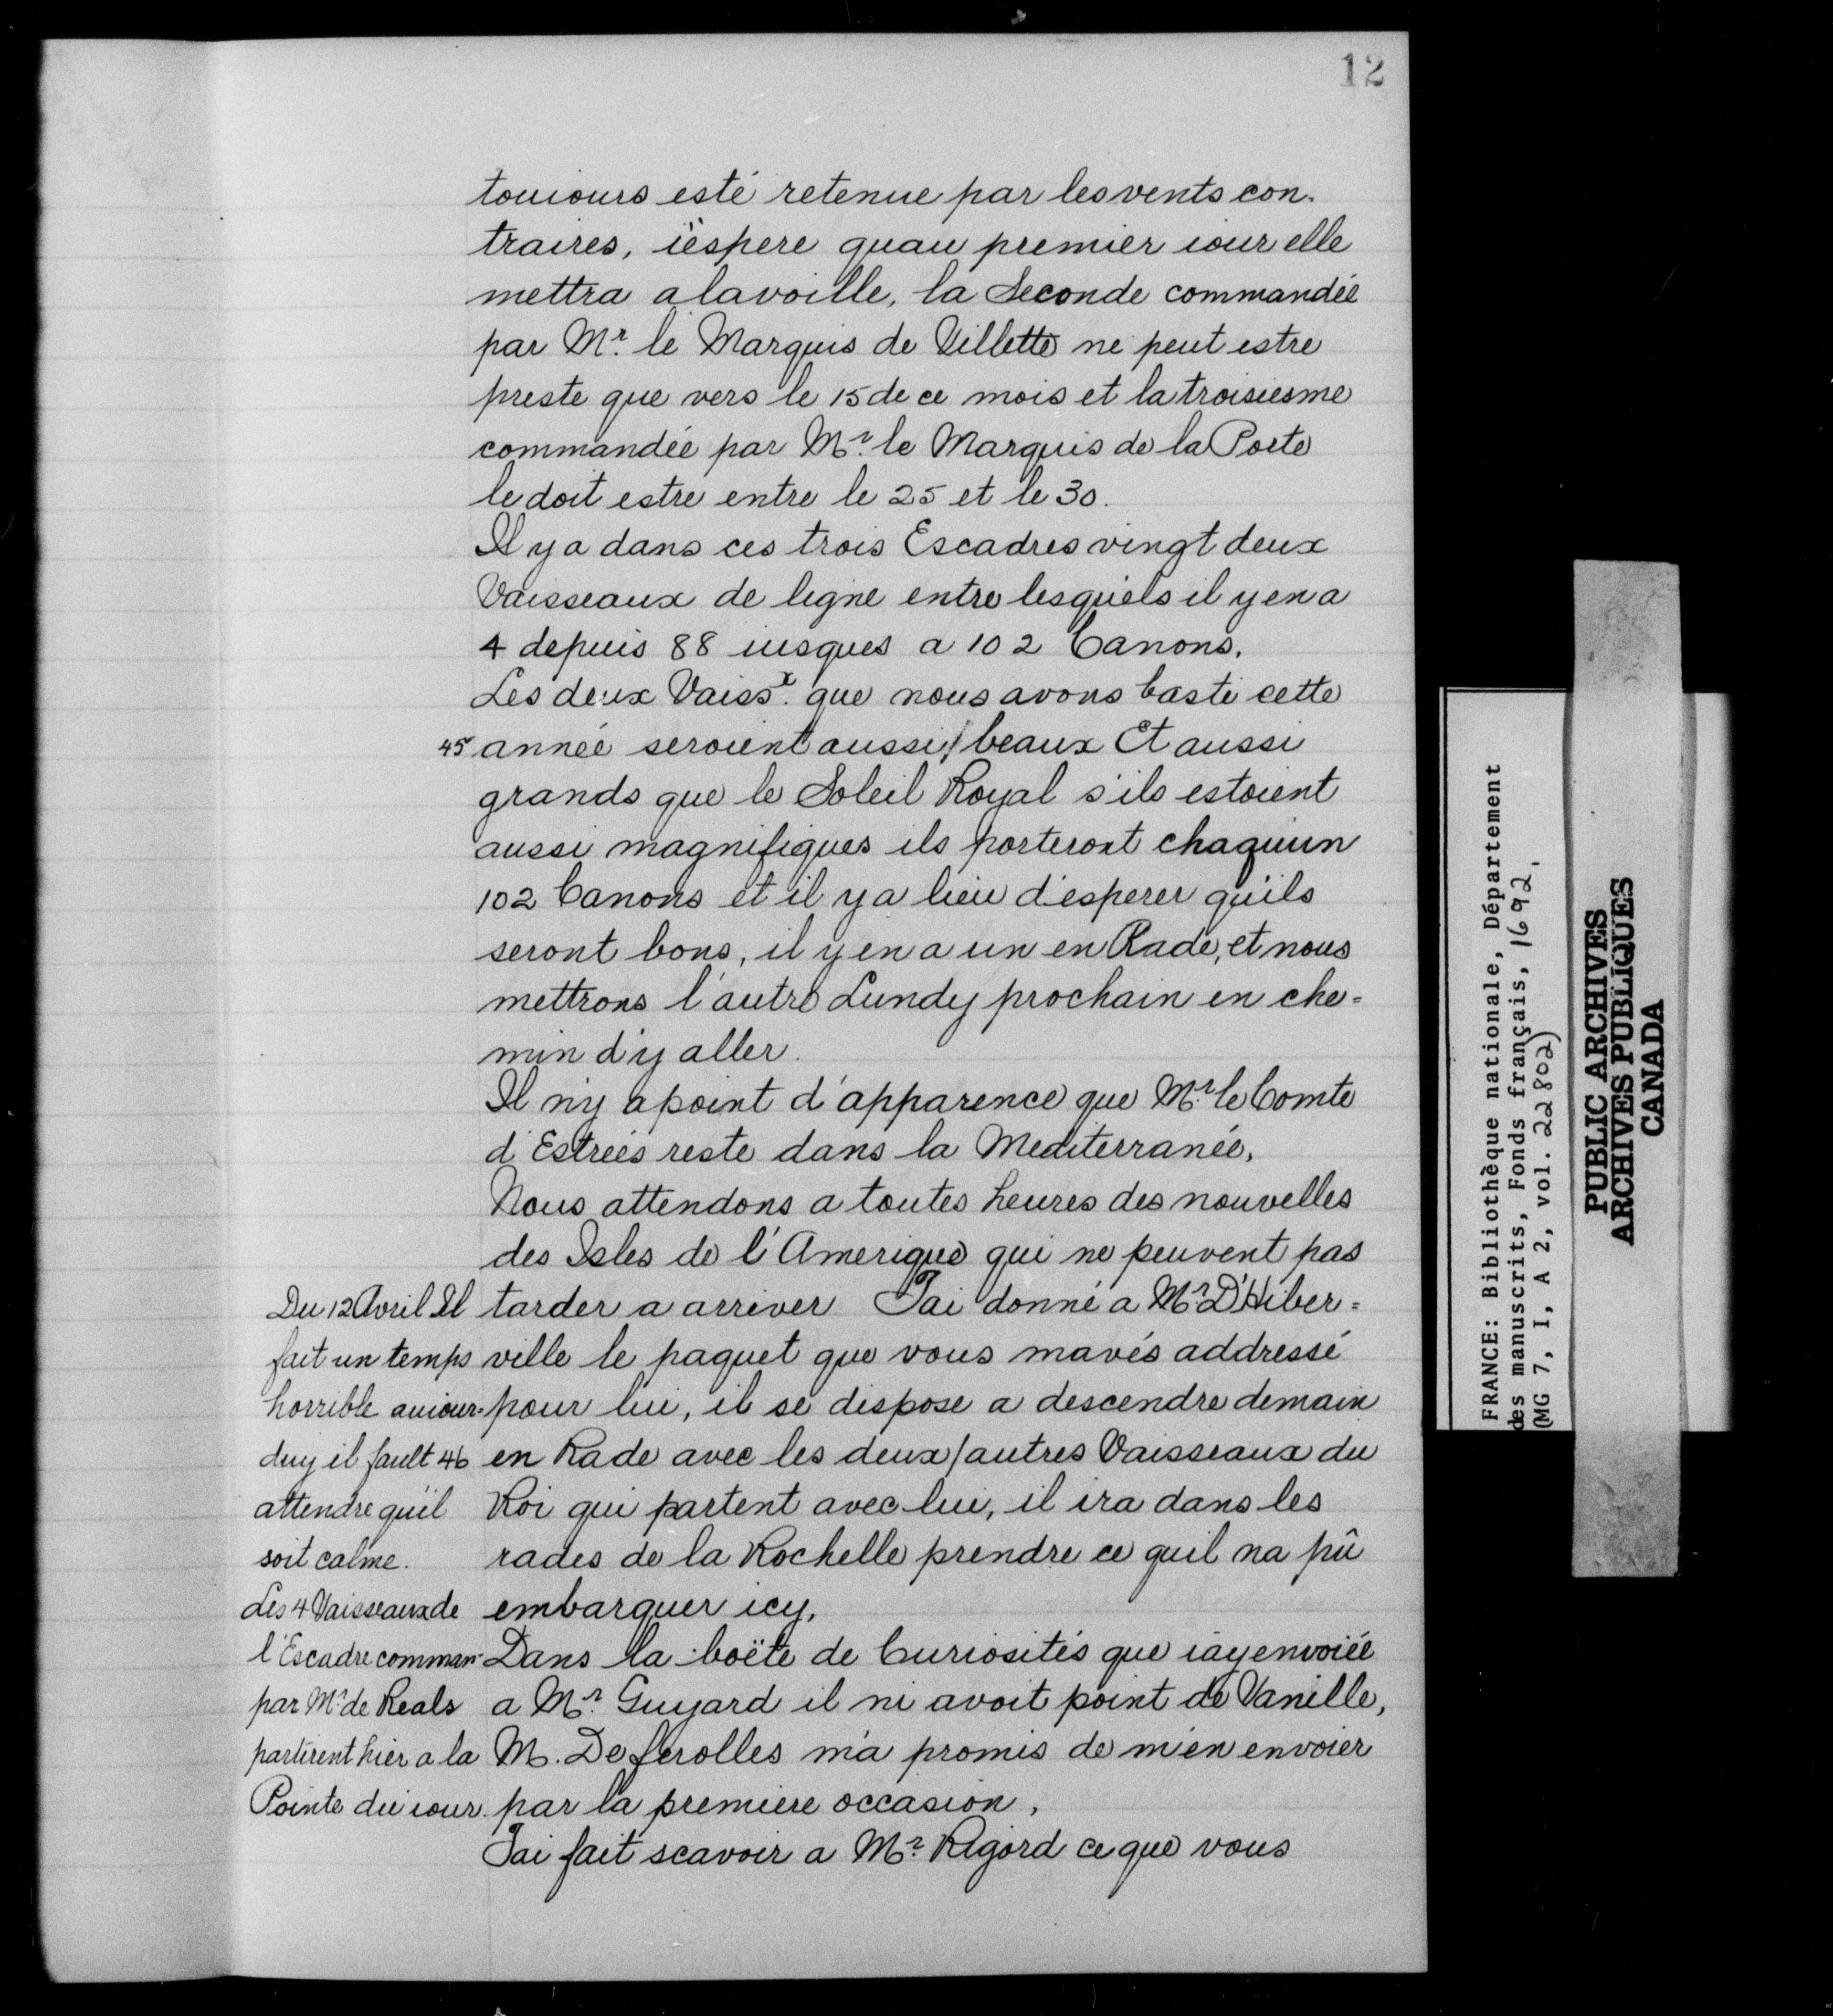 12
touiours esté retenue par les vents con-
traires, i'espere quau premier iour elle
mettra a la voille, la Seconde commandée
par Mr. le Marquis de Villette ne peut estre
preste que vers le 15 de ce mois et la troisiesme
commandée par Mr. le Marquis de la Porte
le doit estre entre le 25 et le 30.
Il y a dans ces trois Escadres vingt deux
Vaisseaux de ligne entre lesquels il y en a
4 depuis 88 iusques a 102 Canons.
Les deux Vaissx. que nous avons basti cette
45 année seroient aussi / beaux Et aussi
grands que le Soleil Royal s'ils estoient
aussi magnifiques ils porteront chaquun
102 Canons et il y a lieu d'esperer qu'ils
seront bons, il y en a un en Rade, et nous
mettrons l'autre Lundy prochain en che=
min d'y aller.
Il n'y a point d'apparence que Mr. le Comte
d'Estrées reste dans la Mediterranée,
Nous attendons a toutes heures des nouvelles
des Isles de l'Amerique qui ne peuvent pas
tarder a arriver J'ai donné a Mr. D'Hiber=
ville le paquet que vous mavés addressé
pour lui, il se dispose a descendre demain
46 en Rade avec les deux / autres Vaisseaux du
Roi qui partent avec lui, il ira dans les
rades de la Rochelle prendre ce quil na pû
embarquer icy,
Dans la boëte de Curiosités que iay envoiée
a Mr. Guyard il ni avoit point de Vanille,
M. De ferolles m'a promis de m'en envoier
par la premiere occasion,
J'ai fait scavoir a Mr. Rigord ce que vous
Du 12 Avril Il
fait un temps
horrible auiour-
duy il fault
attendre qu'il
soit calme.
Les 4 Vaisseaux de
l'Escadre comman-
par Mr. de Reals
partirent hier a la
Pointe du iour.
FRANCE: Bibliothèque nationale, Département
des manuscrits, Fonds français, 1692,
(MG 7, I, A 2, vol. 22802)
PUBLIC ARCHIVES
ARCHIVES PUBLIQUES
CANADA